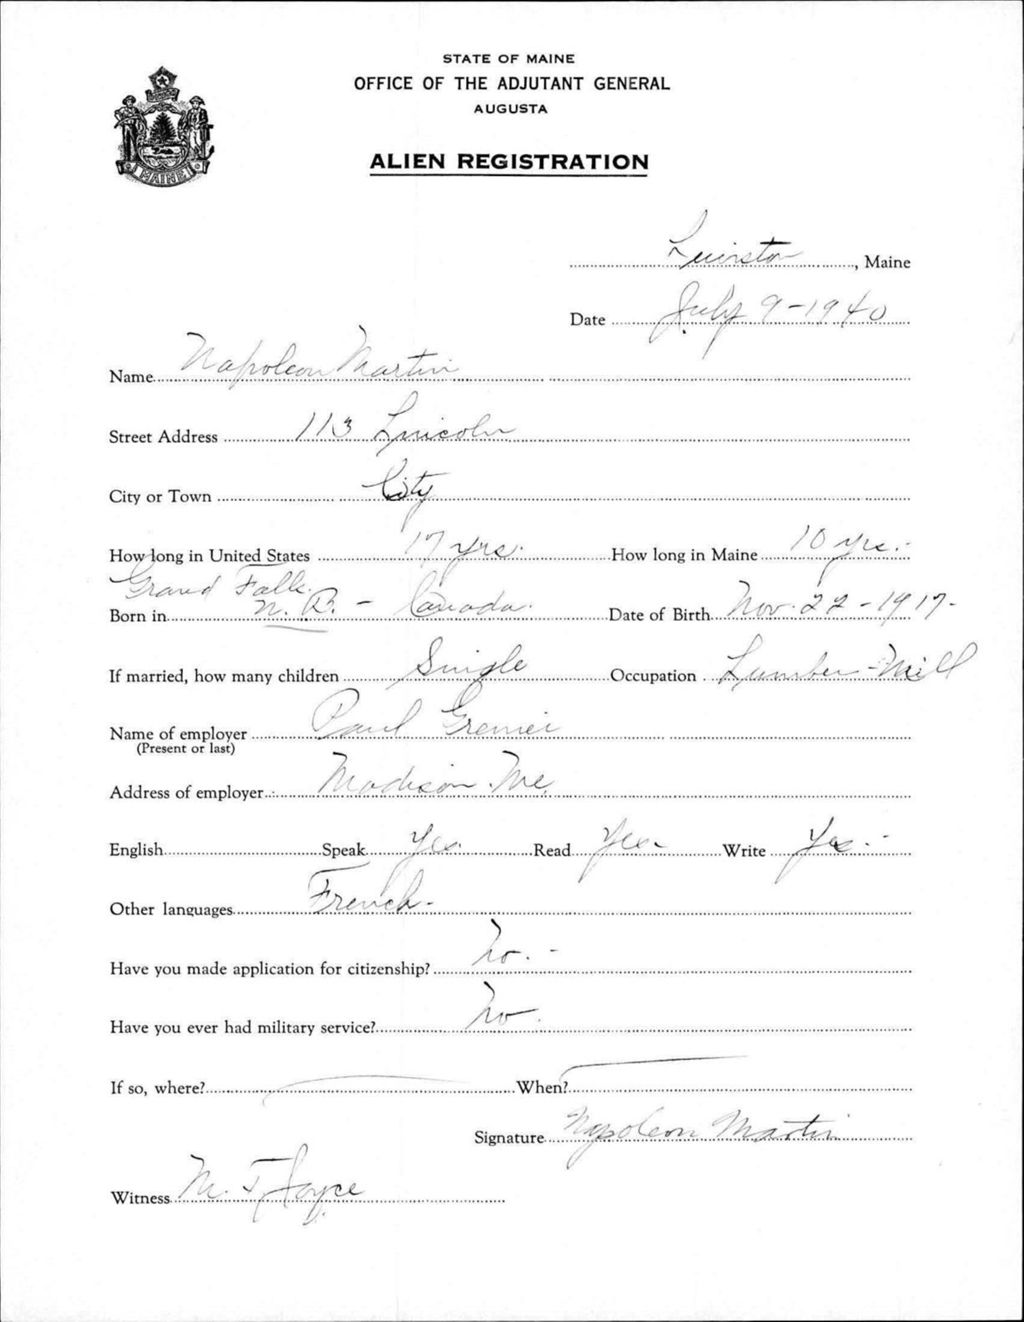 STATE OF MAINE
OFFICE OF THE ADJUTANT GENERAL
AUGUSTA
ALIEN REGISTRATION
MAINE
Lewiston, Maine
Date July 9-1940
Name Napoleon Martin
Street Address 113 Lincoln
City or Town City
How long in United States 17 yrs. How long in Maine 10 yrs.-
Grand Falls.
Born in N. B. - Canada. Date of Birth Nov. 22-1917-
If married, how many children Single Occupation Lumber-Mill
Name of employer Paul Grenier
(Present or last)
Address of employer Madison Me.
English Speak Yes. Read Yes- Write Yes.-
Other languages French-
Have you made application for citizenship? No.-
Have you ever had military service? No.
If so, where? When?
Signature Napoleon Martin
Witness M. T. Joyce